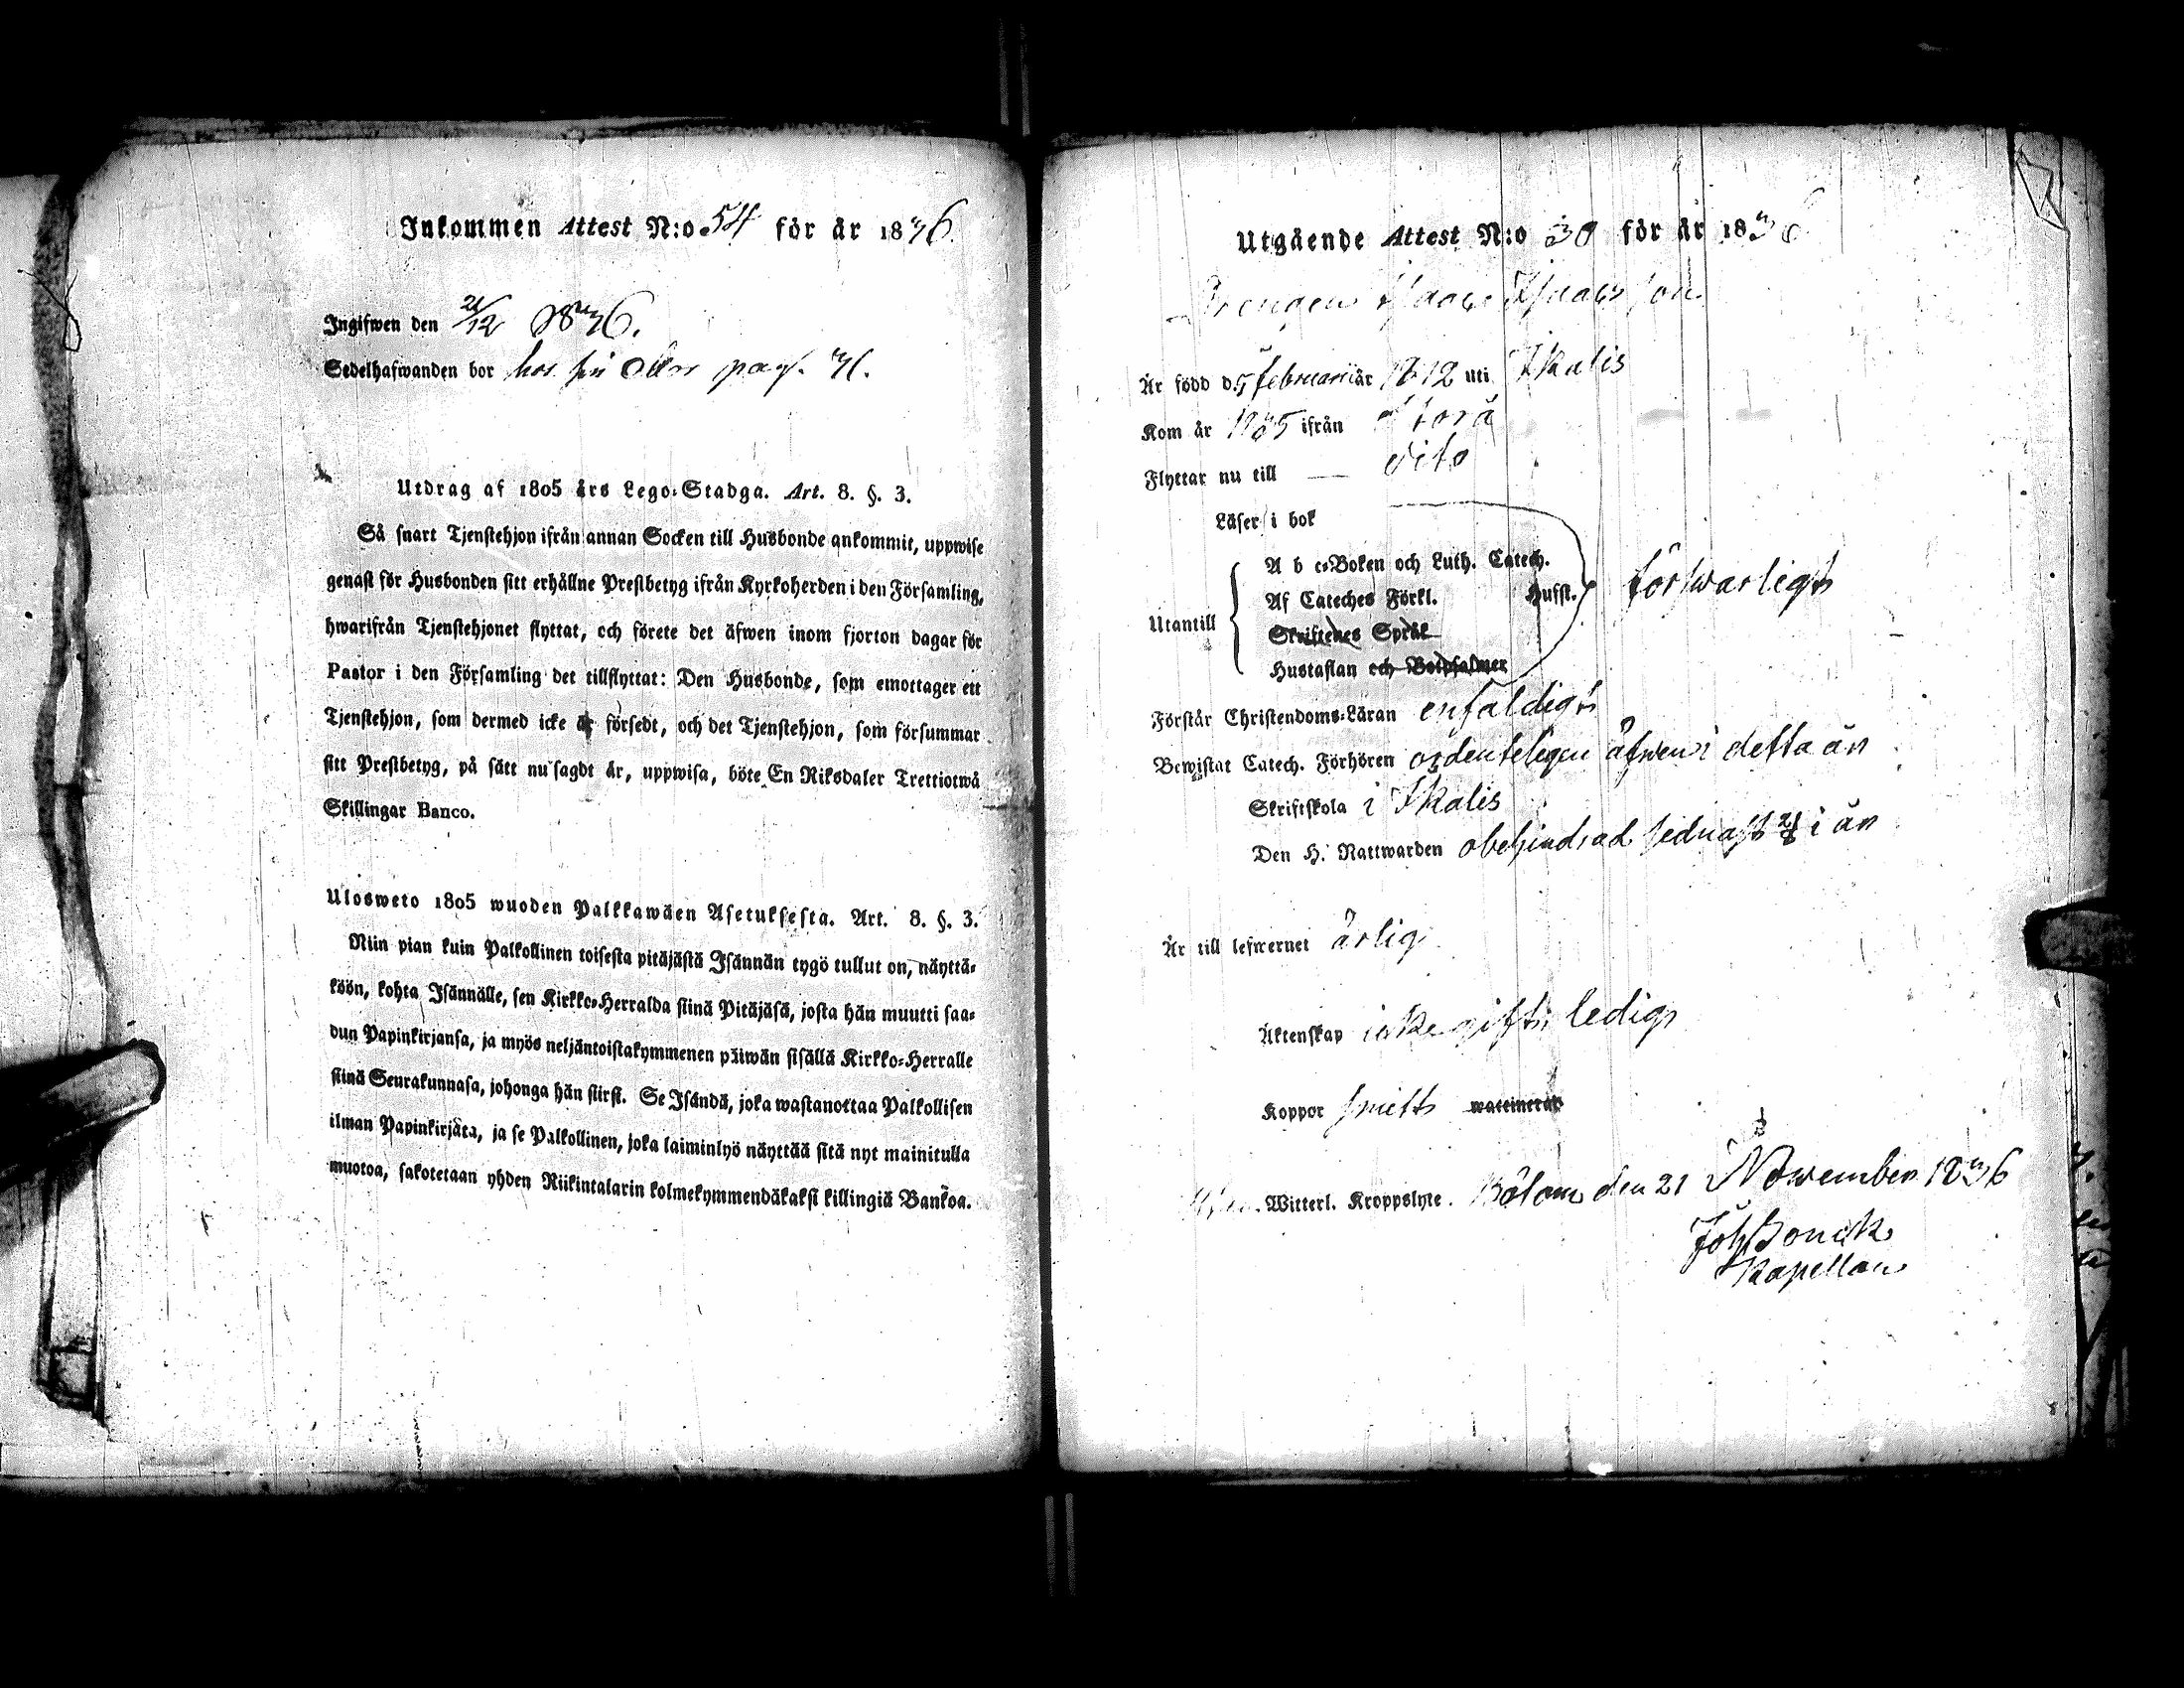 Inkommen Attest N:o 54 för år 1836.
Ingifwen den 21/12 1836.
Sedelhafwanden bor hos sin pag. 31.
Utdrag af 1805 års Lego-Stadga. Art. 8. §. 3.
Så snart Tjenstehjon ifrån annan Socken till Husbonde ankommit, uppwise
genast för Husbonden sitt erhållne Prestbetyg ifrån Kyrkoherden i den Församling,
hwarifrån Tjenstehjonet flyttat, och förete det äfwen inom fjorton dagar för
Pastor i den Församling det tillflyttat: Den Husbonde, som emottager ett
Tjenstehjon, som dermed icke är försedt, och det Tjenstehjon, som försummar
sitt Prestbetyg, på sätt nu sagdt är, uppwisa, böte En Riksdaler Trettiotwå
Skillingar Banco.
Ulosweto 1805 wuoden Palkkawäen Asetuksesta. Art. 8. §. 3.
Niin pian kuin Palkollinen toisesta pitäjästä Isännän tygö tullut on, näyttä-
köön, kohta Isännälle, sen Kirkko-Herralda siinä Pitäjäsä, josta hän muutti saa-
dun Papinkirjansa, ja myös neljäntoistakymmenen päiwän sisällä Kirkko-Herralle
siinä Seurakunnasa, johonga hän siirsi. Se Isändä, joka wastanottaa Palkollisen
ilman Papinkirjata, ja se Palkollinen, joka laiminlyö näyttää sitä nyt mainitulla
muotoa, sakotetaan yhden Riikintalarin kolmekymmendäkaksi killingiä Bankoa.
Utgående Attest N:o 30 för år 1836
Drengen Isaac Isaacsson
Är född d. 5 februarii år 1812 uti Ikalis
Kom år 1835 ifrån Storå
Flyttar nu till — dito
Läser i bok
A b c-Boken och Luth. Catech.
Af Cateches Förkl. Husst. förswarligt
Utantill
Skriftenes Språk
Hustaflan och Botpsalmer
Förstår Christendoms-Läran enfaldigt
Bewistat Catech. Förhören ordenteligen äfwen i detta år
Skriftskola i Ikalis
Den H. Nattwarden obehindrad sednast i år
Är till lefwernet ärlig
Äktenskap icke gift, ledig
Koppor smitts waccinerad
Utan Witterl. Kroppslyte. Bötom den 21 November 1836
Joh Bonck
Kapellan